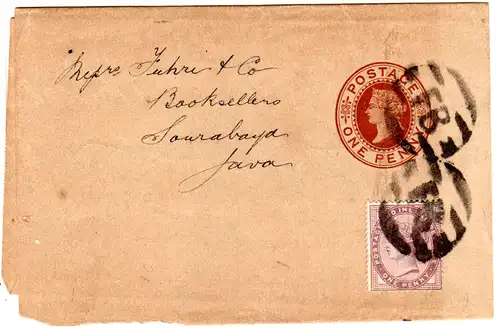 Messrs Fuhri & Co
Booksellers
Sourabaya
Java
POSTAGE
ONE PENNY
POSTAGE
ONE PENNY